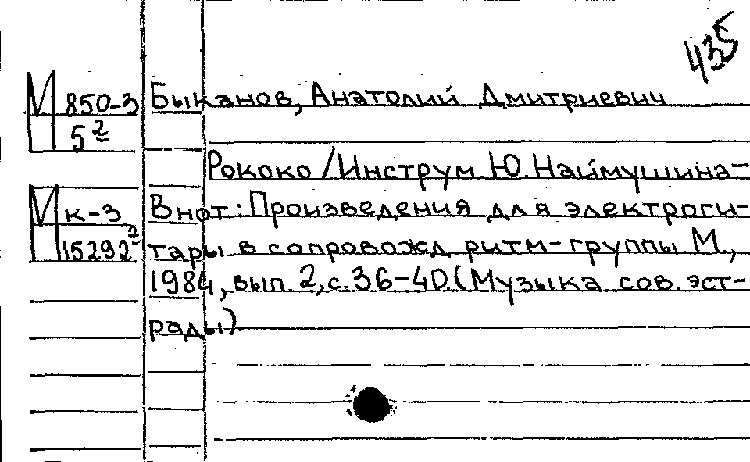 435
М 850-3 Быканов, Анатолий Дмитриевич
5²
Рококо /Инструм Ю. Наймушина-
М к-3 В нот: Произведения для электроги-
15292² тары в сопровожд ритм-группы М.,
1984, вып. 2, с. 36-40. (Музыка сов. эст-
рады)